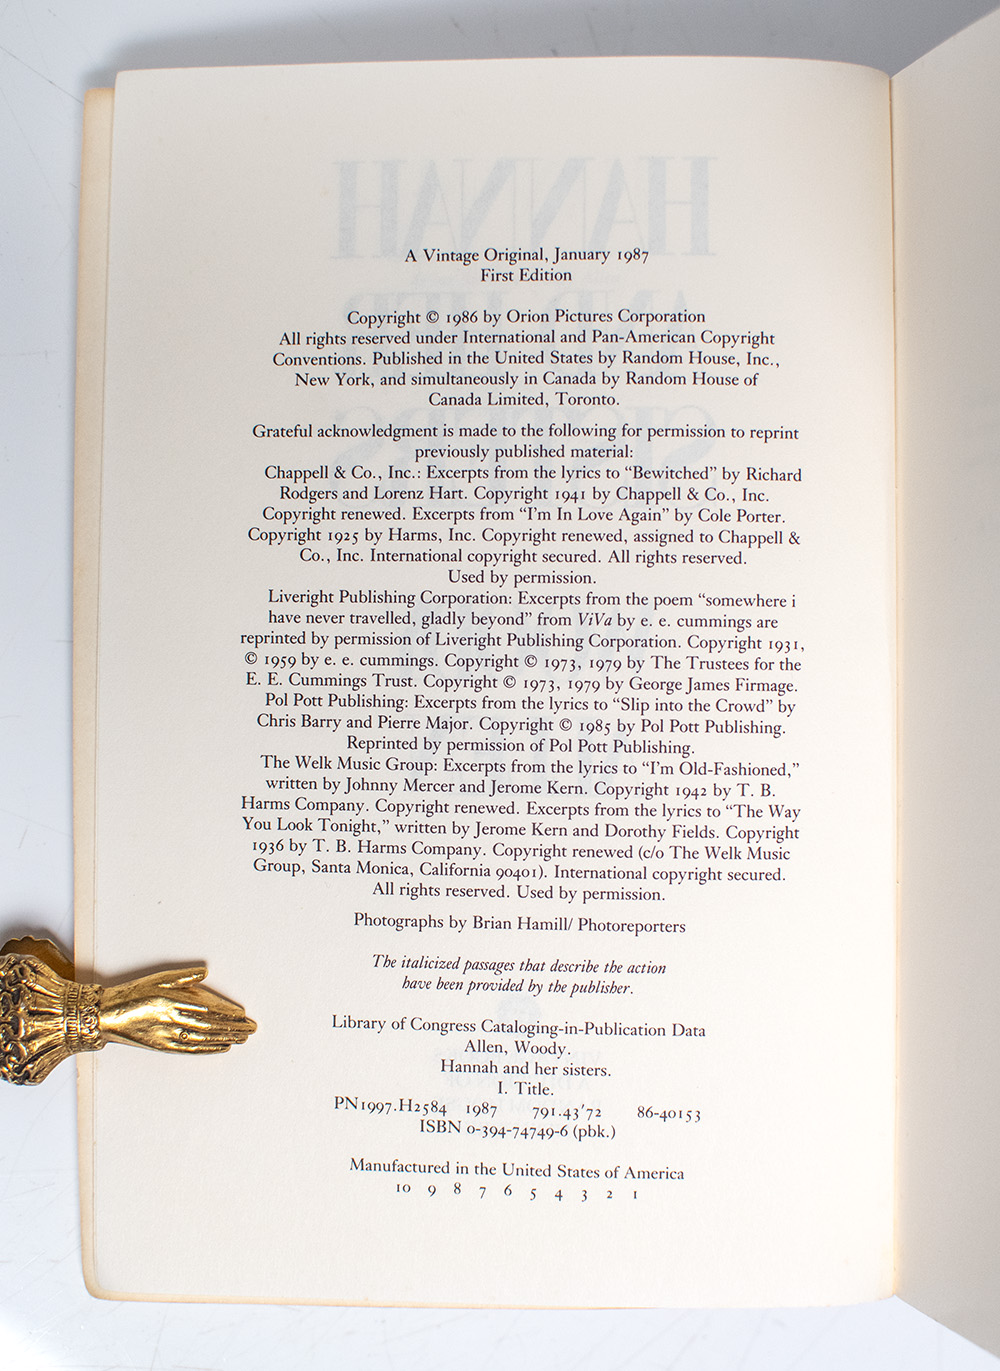 A Vintage Original, January 1987
First Edition
Copyright © 1986 by Orion Pictures Corporation
All rights reserved under International and Pan-American Copyright
Conventions. Published in the United States by Random House, Inc.,
New York, and simultaneously in Canada by Random House of
Canada Limited, Toronto.
Grateful acknowledgment is made to the following for permission to reprint
previously published material:
Chappell & Co., Inc.: Excerpts from the lyrics to “Bewitched” by Richard
Rodgers and Lorenz Hart. Copyright 1941 by Chappell & Co., Inc.
Copyright renewed. Excerpts from “I’m In Love Again” by Cole Porter.
Copyright 1925 by Harms, Inc. Copyright renewed, assigned to Chappell &
Co., Inc. International copyright secured. All rights reserved.
Used by permission.
Liveright Publishing Corporation: Excerpts from the poem “somewhere i
have never travelled, gladly beyond” from ViVa by e. e. cummings are
reprinted by permission of Liveright Publishing Corporation. Copyright 1931,
© 1959 by e. e. cummings. Copyright © 1973, 1979 by The Trustees for the
E. E. Cummings Trust. Copyright © 1973, 1979 by George James Firmage.
Pol Pott Publishing: Excerpts from the lyrics to “Slip into the Crowd” by
Chris Barry and Pierre Major. Copyright © 1985 by Pol Pott Publishing.
Reprinted by permission of Pol Pott Publishing.
The Welk Music Group: Excerpts from the lyrics to “I’m Old-Fashioned,”
written by Johnny Mercer and Jerome Kern. Copyright 1942 by T. B.
Harms Company. Copyright renewed. Excerpts from the lyrics to “The Way
You Look Tonight,” written by Jerome Kern and Dorothy Fields. Copyright
1936 by T. B. Harms Company. Copyright renewed (c/o The Welk Music
Group, Santa Monica, California 90401). International copyright secured.
All rights reserved. Used by permission.
Photographs by Brian Hamill/ Photoreporters
The italicized passages that describe the action
have been provided by the publisher.
Library of Congress Cataloging-in-Publication Data
Allen, Woody.
Hannah and her sisters.
I. Title.
PN1997.H2584 1987 791.43'72 86-40153
ISBN 0-394-74749-6 (pbk.)
Manufactured in the United States of America
10 9 8 7 6 5 4 3 2 1